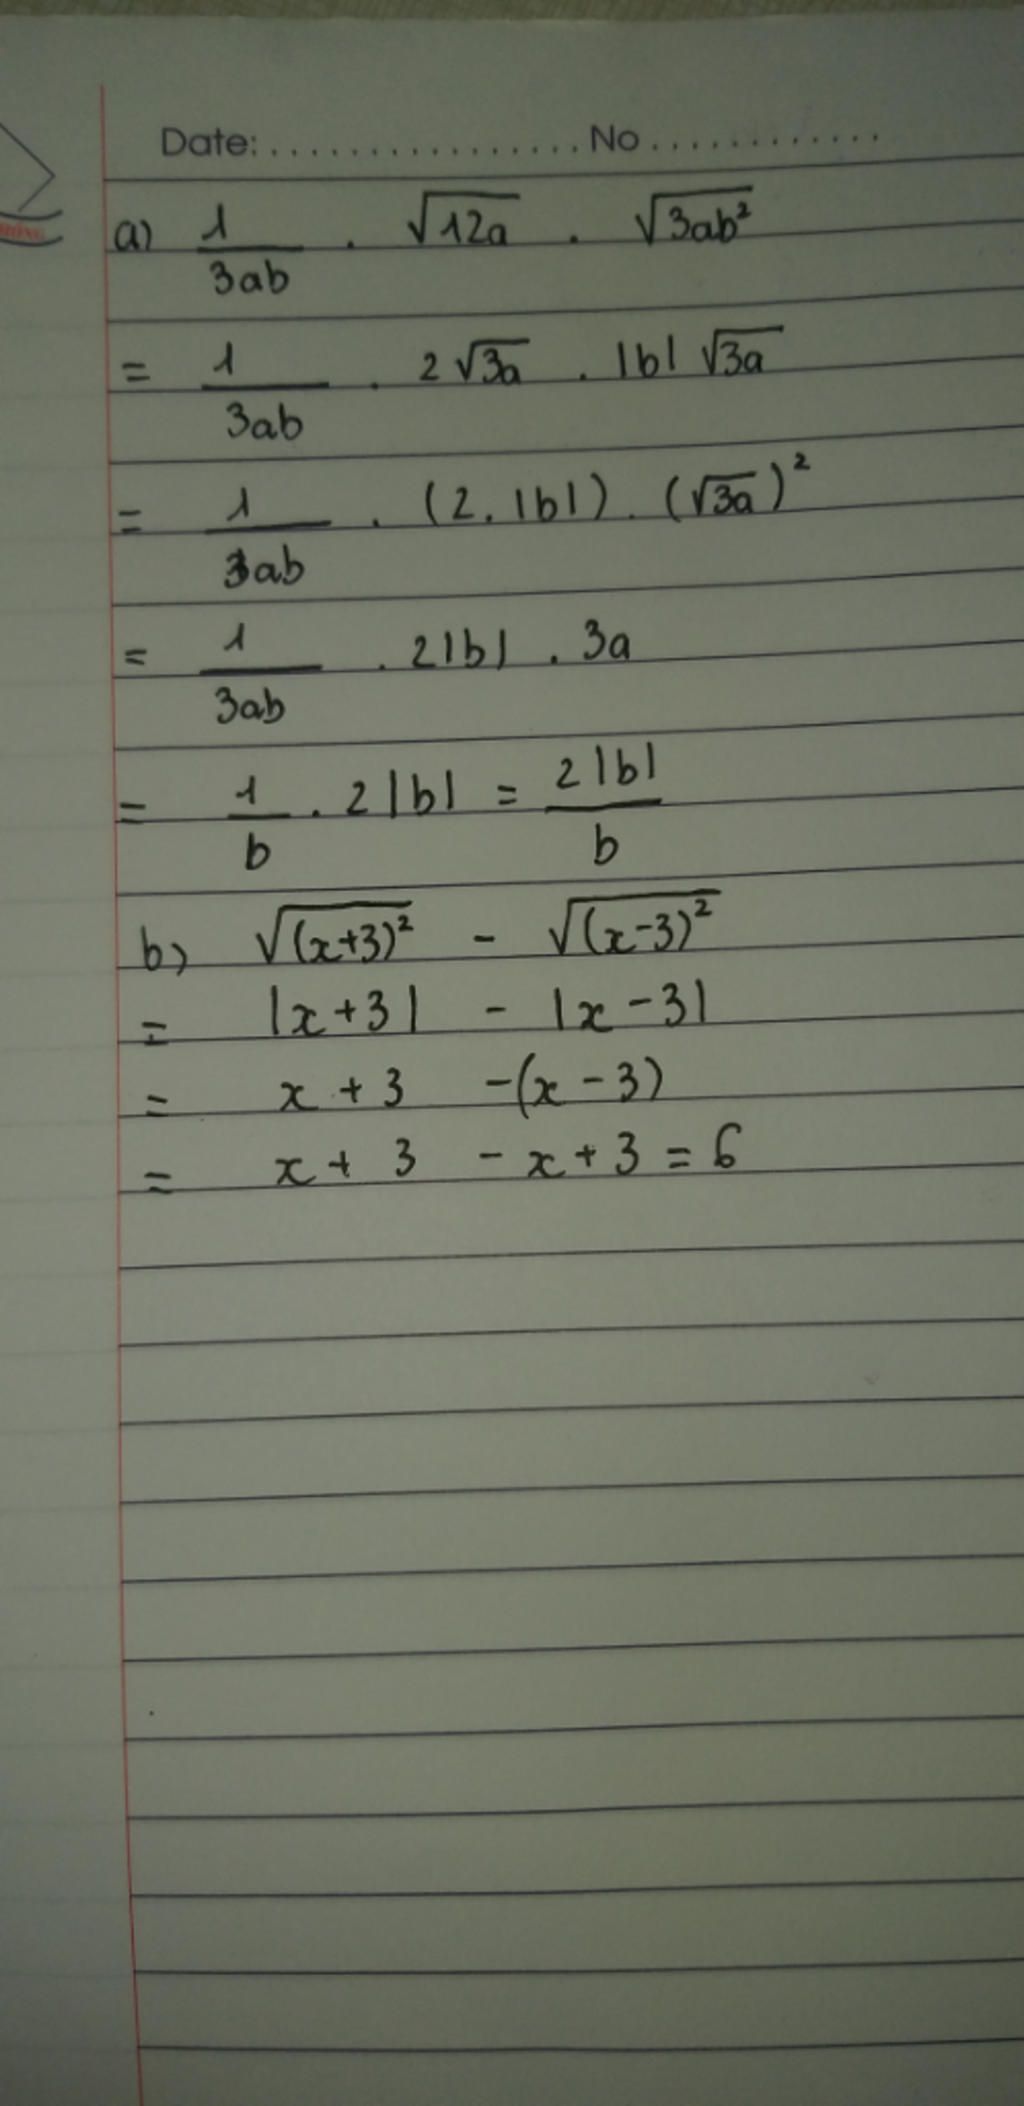 Date: ................. No ............
a) 1/3ab . √12a . √3ab²
= 1/3ab . 2√3a . |b|√3a
= 1/3ab . (2.|b|) . (√3a)²
= 1/3ab . 2|b| . 3a
= 1/b . 2|b| = 2|b|/b
b) √(x+3)² - √(x-3)²
= |x+3| - |x-3|
= x+3 -(x-3)
= x+3 -x+3 = 6